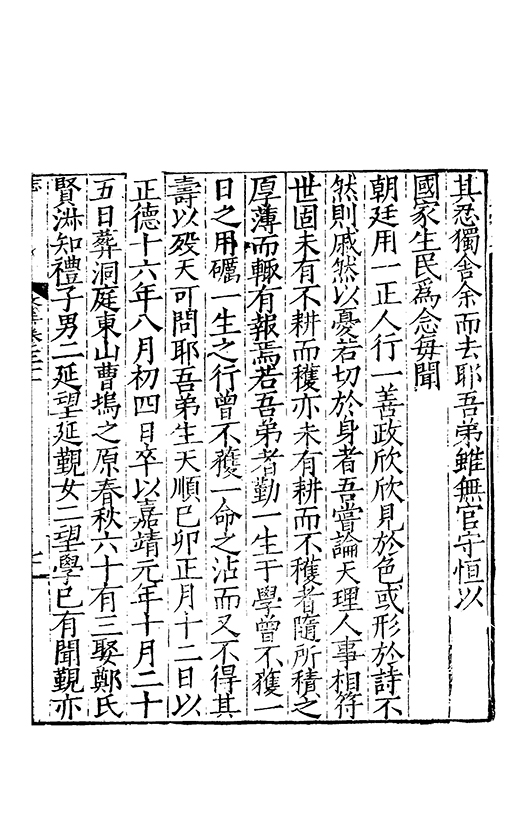 其忍獨舍余而去耶吾弟雖無官守恒以
國家生民爲念每聞
朝廷用一正人行一善政欣欣見於色或形於詩不
然則戚然以憂若切於身者吾嘗論天理人事相符
世固未有不耕而穫亦未有耕而不穫者隨所積之
厚薄而輙有報焉若吾弟者勤一生于學曾不獲一
日之用礪一生之行曾不獲一命之沾而又不得其
壽以殁天可問耶吾弟生天順己卯正月十二日以
正德十六年八月初四日卒以嘉靖元年十月二十
五日葬洞庭東山曹塢之原春秋六十有三娶鄭氏
賢淋知禮子男二延望延覲女二望學已有聞覲亦